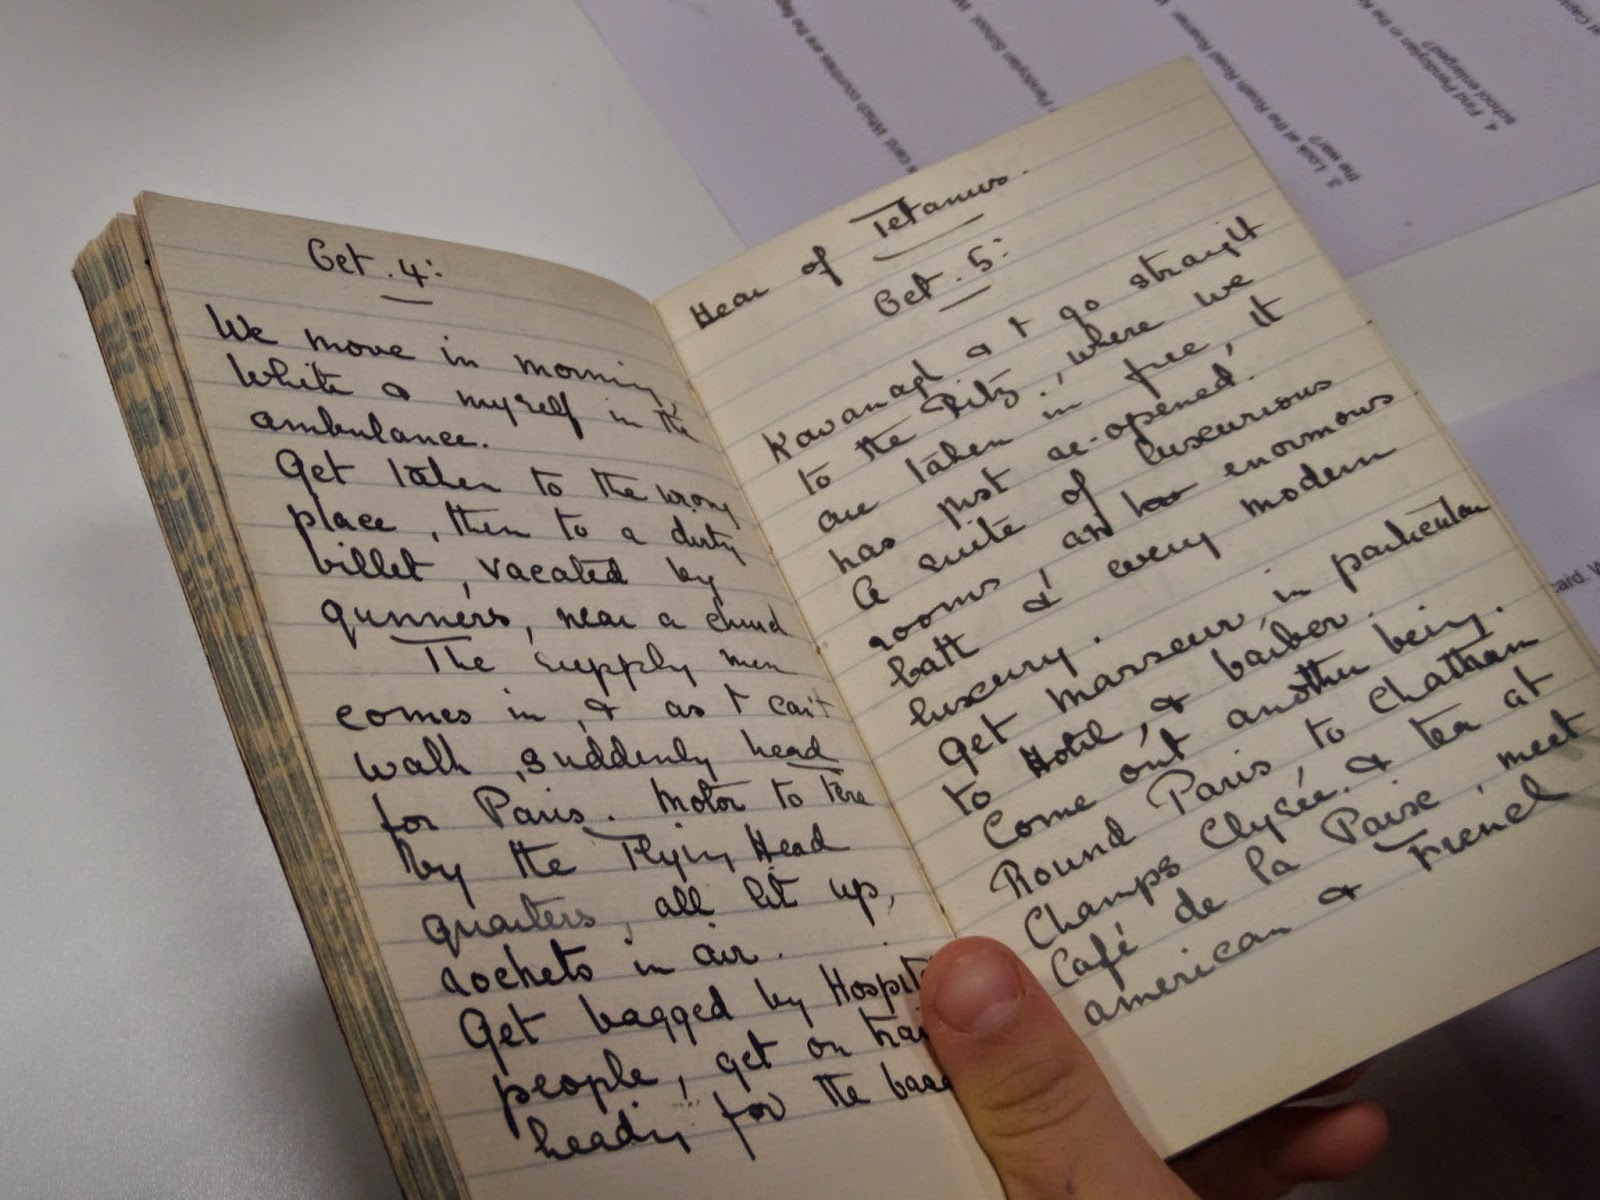 Oct. 4:
We move in morning
White & myself in the
ambulance.
Get taken to the wrong
place, then to a dirty
billet, vacated by
gunners, near a church
The supply men
comes in, & as I can't
walk, suddenly head
for Paris. Motor to Fère
by the Flying Head
quarters, all lit up,
rockets in air.
Get bagged by Hospital
people, get on train
heading for the base
Hear of Tetanus.
Oct. 5:
Kavanagh & I go straight
to the Ritz, where we
are taken in free, it
has just re-opened.
A suite of luxurious
rooms, an enormous
bath & every modern
luxury.
Get Masseur, in particular
to Hotel, & barber.
Come out another being.
Round Paris, to Chatham
Champs Elysée. & tea at
Café de la Paise, meet
American & French
4. Find Pendoylan in the
school enlarged?
3. Look at the Roath Road Roamer
the war?
Pendoylan School.
card. Which countries are the